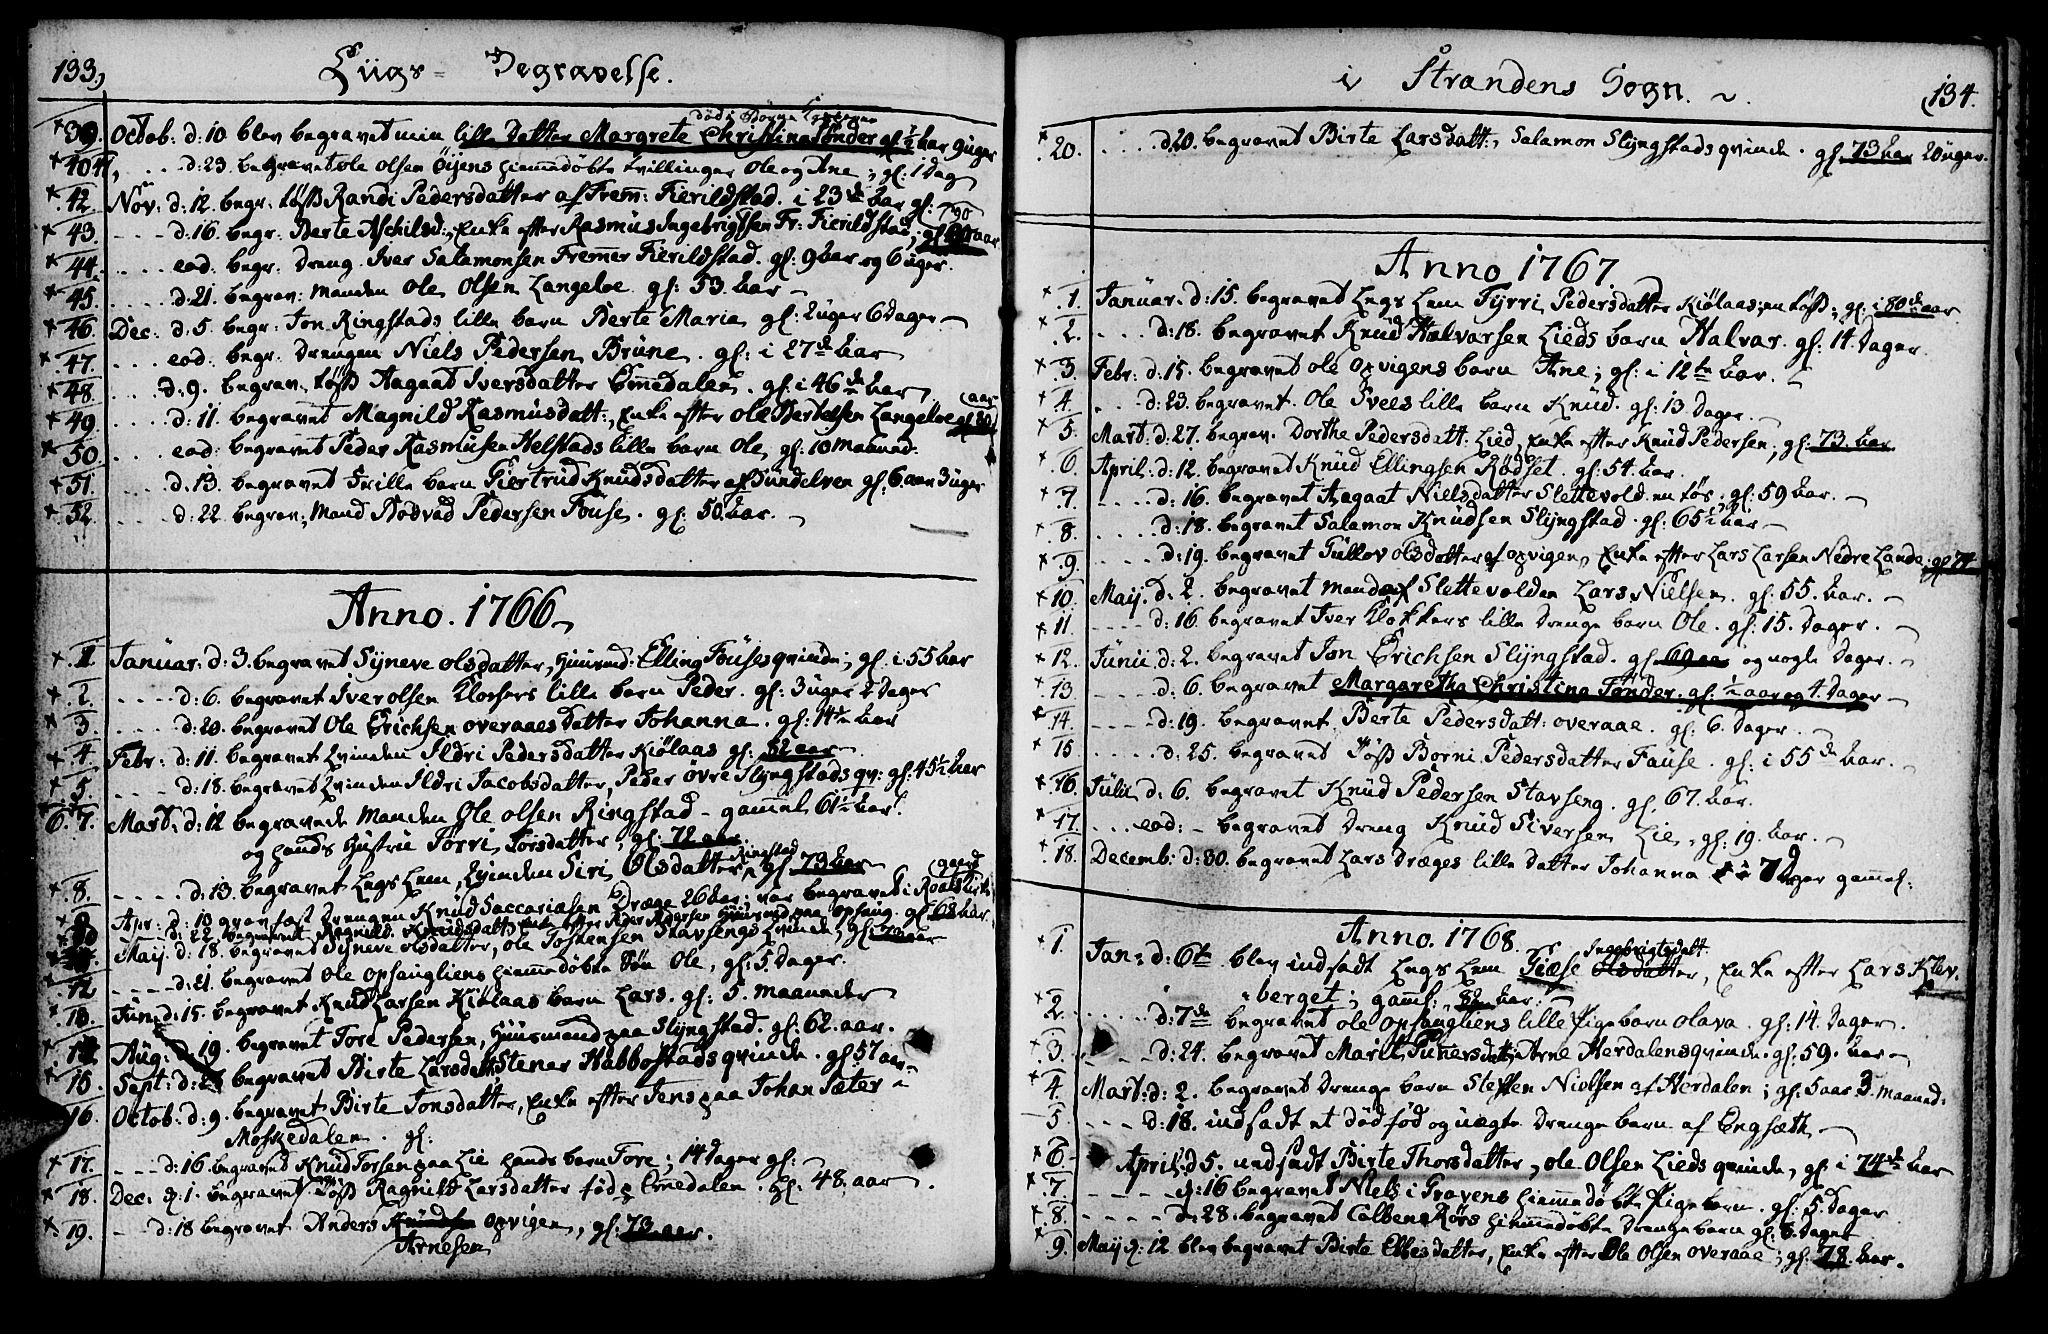 133.
Liigs- Begravelse.
døde Børne
39. Octob: d: 10 blev begravet min lille Datter Margrete Christina Tønder gl. ½ aar 9 uger
40 41, ... d: 23. begravet ole olsen Öÿens hiemedøbte tvillinger Ole og Ane; gl: 1 Dag
42 Nov: d: 12. begr: løss Randi Pedersdatter af Frem: Fierildstad. i 23de aar gl:
43. - - - d: 16. begr. Berte Aschilsd:, Enke efter Rasmus Ingebrigtsen Fr: Fierildstad; gl: 90 aar
44. .... eod. begr. Dreng Iver Salamonsen Fremer Fierildstad. gl: 9 aar og 6 uger.
45. .... d: 21. begrav: Manden Ole Olsen Langeloe. gl: 53. aar
46. Dec: d: 5. begr: Jon Ringstads lille barn Berte Maria, gl: 2 uger 6 Dager.
47. .... eod. begr. Drengen Niels Pedersen Brune. gl: i 27de aar
48. ... d: 9. begrav: løss Aagaat Iversdatter Emdalen. gl: i 46de aar
49. .... d: 11. begravet Magnild Rasmusdatt:, Enke efter Ole Bertelsen Langeloe gl: 80 (aar
50. .... eod: begravet Peder Rasmusen Helstads lille barn Ole, gl: 10 Maaned.
51. .... d: 13. begravet Frille barn Giertrud Knudsdatter af Sundelven gl: 6. aar 3 uger
52. .... d: 22. begrav: Mand Nodvad Pedersen Fouse. gl: 50. aar.
Anno. 1766
1. Januar: d: 3. begravet Synneve olsdatter, huusmd: Elling Fouses qvinde; gl: i 55 aar
2. ---- d: 6. begravet Iver olsen Klochers lille barn Peder. gl: 3 uger 2 Dager
3. .... d: 20. begravet Ole Erichsen overaaes datter Johanna. gl: 14de aar
4. Febr: d: 11. begravet Qvinden Ildri Pedersdatter Kiølaas gl: 52 aar
5. ---- d: 18. begravet Qvinden Ildri Jacobsdatter, Peder øvre Slyngstads qv: gl: 45½ aar
6. 7. Mart: d: 12 begravede Manden Ole olsen Ringstad - gammel 61½ aar.
og hands Hustrue Torri Torsdatter, gl: 72 aar
8. ---- d: 13. begravet Legs Lem, Qvinden Siri Olsdatter Ringstad gl: 73 aar
9. Apr: d: 10 grav fæst Drengen Knud Saccariasen Dræge 26 aar, var begravet i Roalds Kirke (gaard
10 d: 22. begravet Ragnild Knudsdatt: Enke efter Peder Pedersen Huusmand paa Opsaug. gl: 68 aar.
11. Maij d: 18. begravet Synneve olsdatter, ole Tostensen Stavsengs Qvinde, gl: aar
12 ---- d: 21. begravet Ole Opsaugliens hiemedøbte Søn Ole, gl: 5. Dager.
13. Jun: d: 15. begravet Knud Larsen Kiølaas barn Lars. gl: 5. Maaneder
14 Aug: d: 19. begravet Tore Pedersen, Huusmand paa Slyngstad. gl: 62. aar.
15. Sept: d: begravet Birte Larsdatt: Stener Habbostads qvinde. gl: 57 aar
16. Octob: d: 9. begravet Birte Jonsdatter, Enke efter Jens paa Johan Sæter
Moskedalen. gl:
17. --- d: 16. begravet Knud Torsen paa Lie hands barn Tore; 14 Dager gl:
18. Dec: d: 1. begravet løss Ragnild Larsdatter fød: Emdalen. gl: 48. aar.
19. - d: 18 begravet Anders Knudsen Opvigen, gl: 73 aar.
Arnesen
i Strandens Sogn.
134.
20. .... d: 20. begravet Birte Larsdatt:, Salamon Slyngstads qvinde. gl: 73 aar 20 uger.
Anno 1767
1. Januar. d: 15. begravet Legs Lem Tyrri Pedersdatter Kiølaas; en løss; gl: i 80de aar
2. .... d: 18. begravet Knud Halvarsen Lieds barn Halvar. gl: 14 Dager.
3. Febr: d: 15. begravet ole opvigens barn Ane; gl: i 12te aar.
4. ... d: 23. begravet Ole Svees lille barn Knud. gl: 13 Dager.
5. Mart: d: 27. begrav. Dorthe Pedersdatt: Lied, Enke efter Knud Pedersen; gl: 73. aar
6. April: d: 12. begravet Knud Ellingsen Rødset. gl: 54. aar.
7. ---- d: 16. begravet Aagaat Nielsdatter Slettevold. en løs. gl: 59 aar.
8. .... d: 18. begravet Salamon Knudsen Slyngstad. gl: 65½ aar
9. ---- d: 19. begravet Gullov olsdatter af opvigen, Enke efter Lars Larsen Nedre Lande. gl: 74
10. Maij. d: 2. begravet mand af Slettevolden Lars Nielsen. gl: 55. aar.
11. .... d: 16. begravet Iver Klokkers lille Drenge barn Ole. gl: 15. Dager.
12. Junii d: 2. begravet Jon Erichsen Slyngstad. gl: 69 aar og nogle Dager.
13. ---- d: 6. begravet Margaretha Christina Tønder. gl: ½ aar og 4. Dager
14. ---- d: 19. begravet Berte Pedersdatt: overaae. gl: 6. Dager.
15 ..... d: 25. begravet løss Borni Pedersdatter Fause. gl: i 55de aar.
16. Julii d: 6. begravet Knud Pedersen Stavseng. gl: 67. aar.
17. ... eod: - begravet Dreng Knud Siversen Lie, gl: 19. aar.
18. Decemb: d: 30. begravet Lars Dræges lille datter Johanna 7 Dager gammel:
Anno. 1768.
Ingebrigtsdatt
1. Jan: d: 6te blev indsadt Legs Lem Giæse Olsdatter, Enke efter Lars Klev-
berget; gaml: 82 aar.
2. ...... d: 7de begravet ole opsaugliens lille Pige barn Olava. gl: 14. Dager.
3. ---- d: 24. begravet Marit Punersdatt: Arne Herdalens qvinde. gl: 59. aar
4. Mart: d: 2. begravet Drenge barn Steffen Nielsen af Herdalen; gl: 5 aar 3. Maaned:
5 --- d: 18. indsadt et dødfød og uægte Drenge barn af Engsæth
6. April: d 5. indsadt Birte Thorsdatter, ole Olsen Lieds qvinde, gl: i 74de aar
7. ---- d: 16 begravet Niels i Gravens hiemedøbte Pige barn. gl: 5. Dager
8. ---- d: 28. begravet Colben Rørs hiemedøbte Drenge barn gl: 8. Dager
9. Maij d: 12 blev begravet Birte Ellisdatter, Enke efter Ole Olsen overaae; gl: 78. aar.